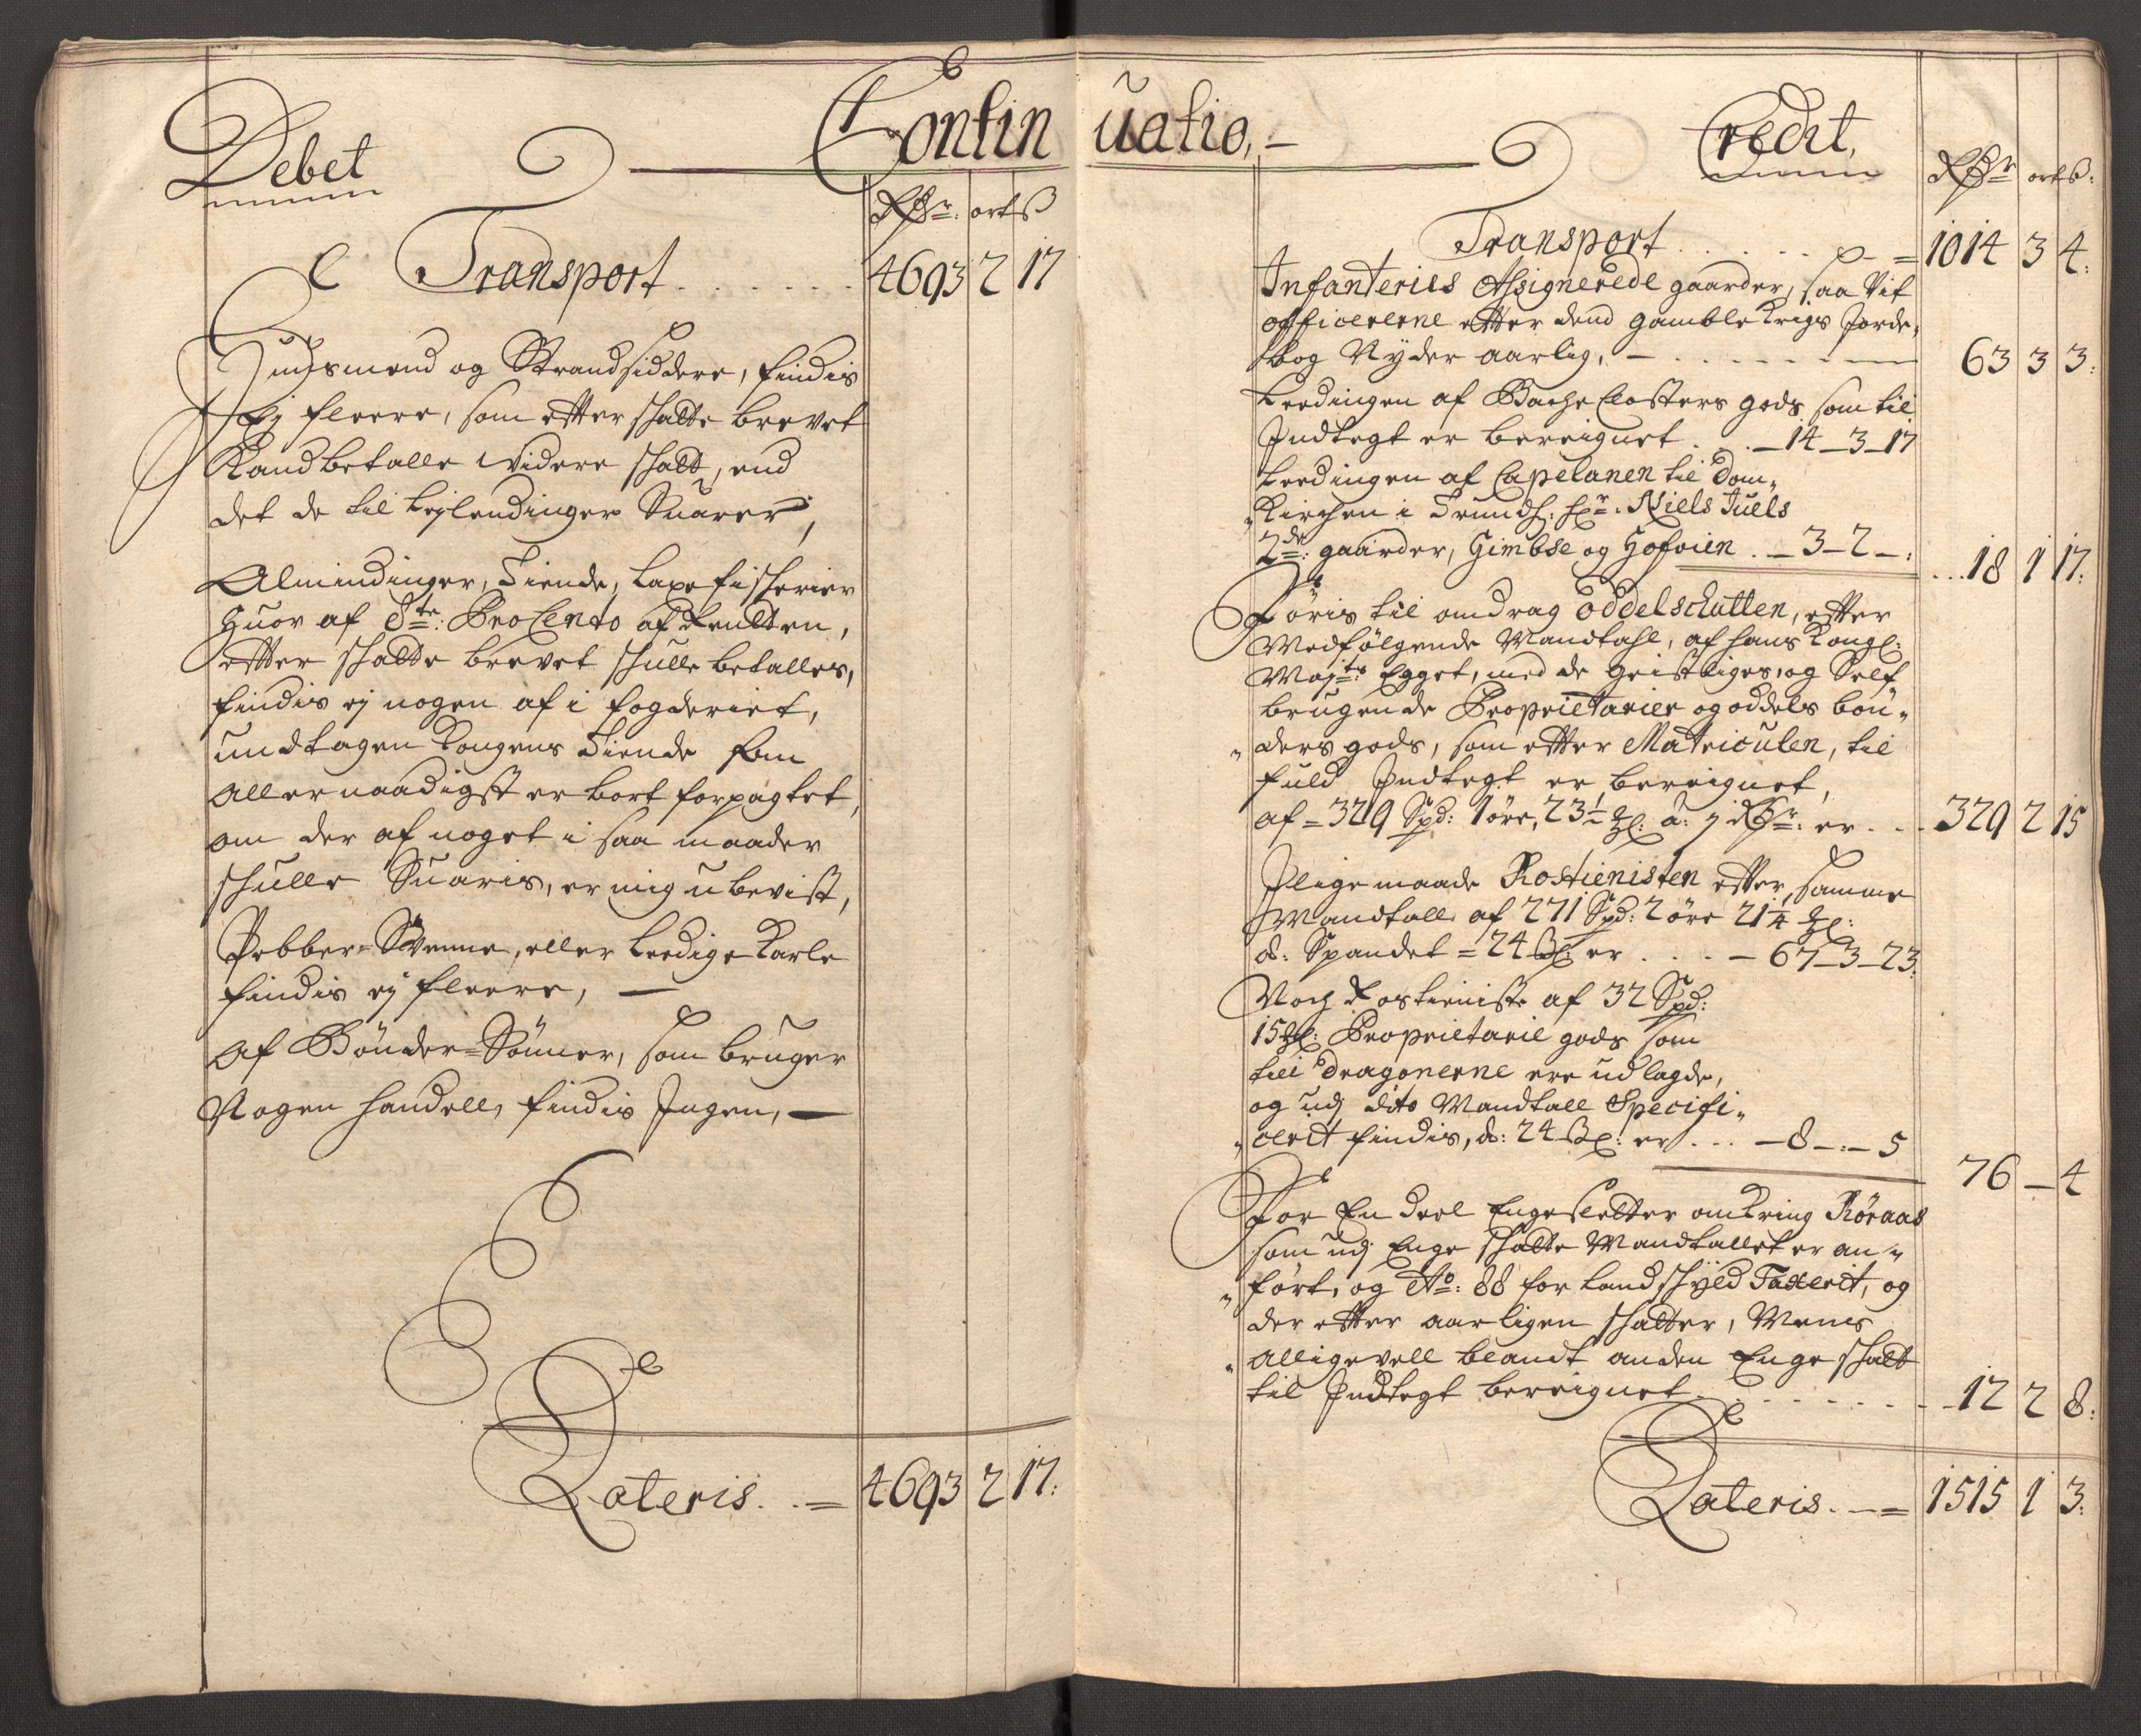 Debet
Continuatio,
Rdr: ort ß
Transport . . . . . . . 4693 2 17
Huusmend og Strandsiddere, findis
Ej fleere, som efter schatte brevet
Kand betalle widere schatt, end
det de til lejlendinger Suarer,
Almindinger, Tiende, laxefischerier
huor af 8te: ProCento af Rentten,
efter schatte brevet schulle betalles,
findis ej nogen af i fogderiet,
undtagen Kongens Tiende som
allernaadigst er bort forpagtet,
om der af noget i saa maader
schulle Suaris, er mig ubevist,
Pebber-Svenne, eller leedige Karle
findis ej fleere, —
af Bönder-Sönner, som bruger
Nogen handell, findis Ingen, —
Lateris. . = 4693 2 17:
Credit,
Rdr ort ß:
Transport . . . . . . = 1014 3 4:
Infanteries Assignerede gaarder, saa vit
officererne efter dend gamble Krigs Jorde-
bog Nyder aarlig, — . . . . . 63 3 3:
Leedingen af Bache Closters gods som til
Indtegt er bereignet . . — 14 — 3 — 17
Leedingen af Capelanen til Dom-
Kirchen i Trundh: Hr: Niels Juels
2de: gaarder, Gimbse og Hofvien . — 3 — 2 — : . . . 18 1 17:
Föris til omdrag Oddelschatten, efter
Medfölgende Mandtahl, af hans Kongl:
Maj:ts Egget, med de geistliges, og Self
brugende Proprietarier og oddels bön-
ders gods, som efter Matriculen, til
fuld Indtegt er bereignet,
af = 329 Spd: 1 öre, 23½ ℳl: à: 1 Rdr: er . . . 329 2 15
Jligemaade Rostienisten efter samme
Mandtall af 271 Spd: 2 öre 21¼ ℳl:
à: Spandet = 24 ßl: er . . . — 67 — 3 — 23:
Noch Rostieniste af 32 Spd:
15 ℳl: Proprietarie gods som
till Dragonerne ere udlagde,
og udj dito Mandtall Specifi-
cerit findis, à: 24 ßl: er . . . — 8 — : — 5
76 — 4
For En deel Engesletter omkring Röraas
som udj Enge schatte Mandtallet er an-
fört, og Ao: 88 for landschyld Taxerit, og
der efter aarligen schatter, Mens
alligevell blandt anden Enge schatt
til Indtegt bereignet . . . . . . . 12 2 8:
Lateris . — = 1515 1 3: